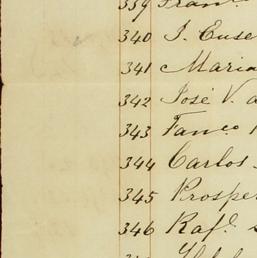 339 Fran
340 J. Euse
341 Maria
342 José V. a
343
344 Carlos
345 Prospe
346 Raf.